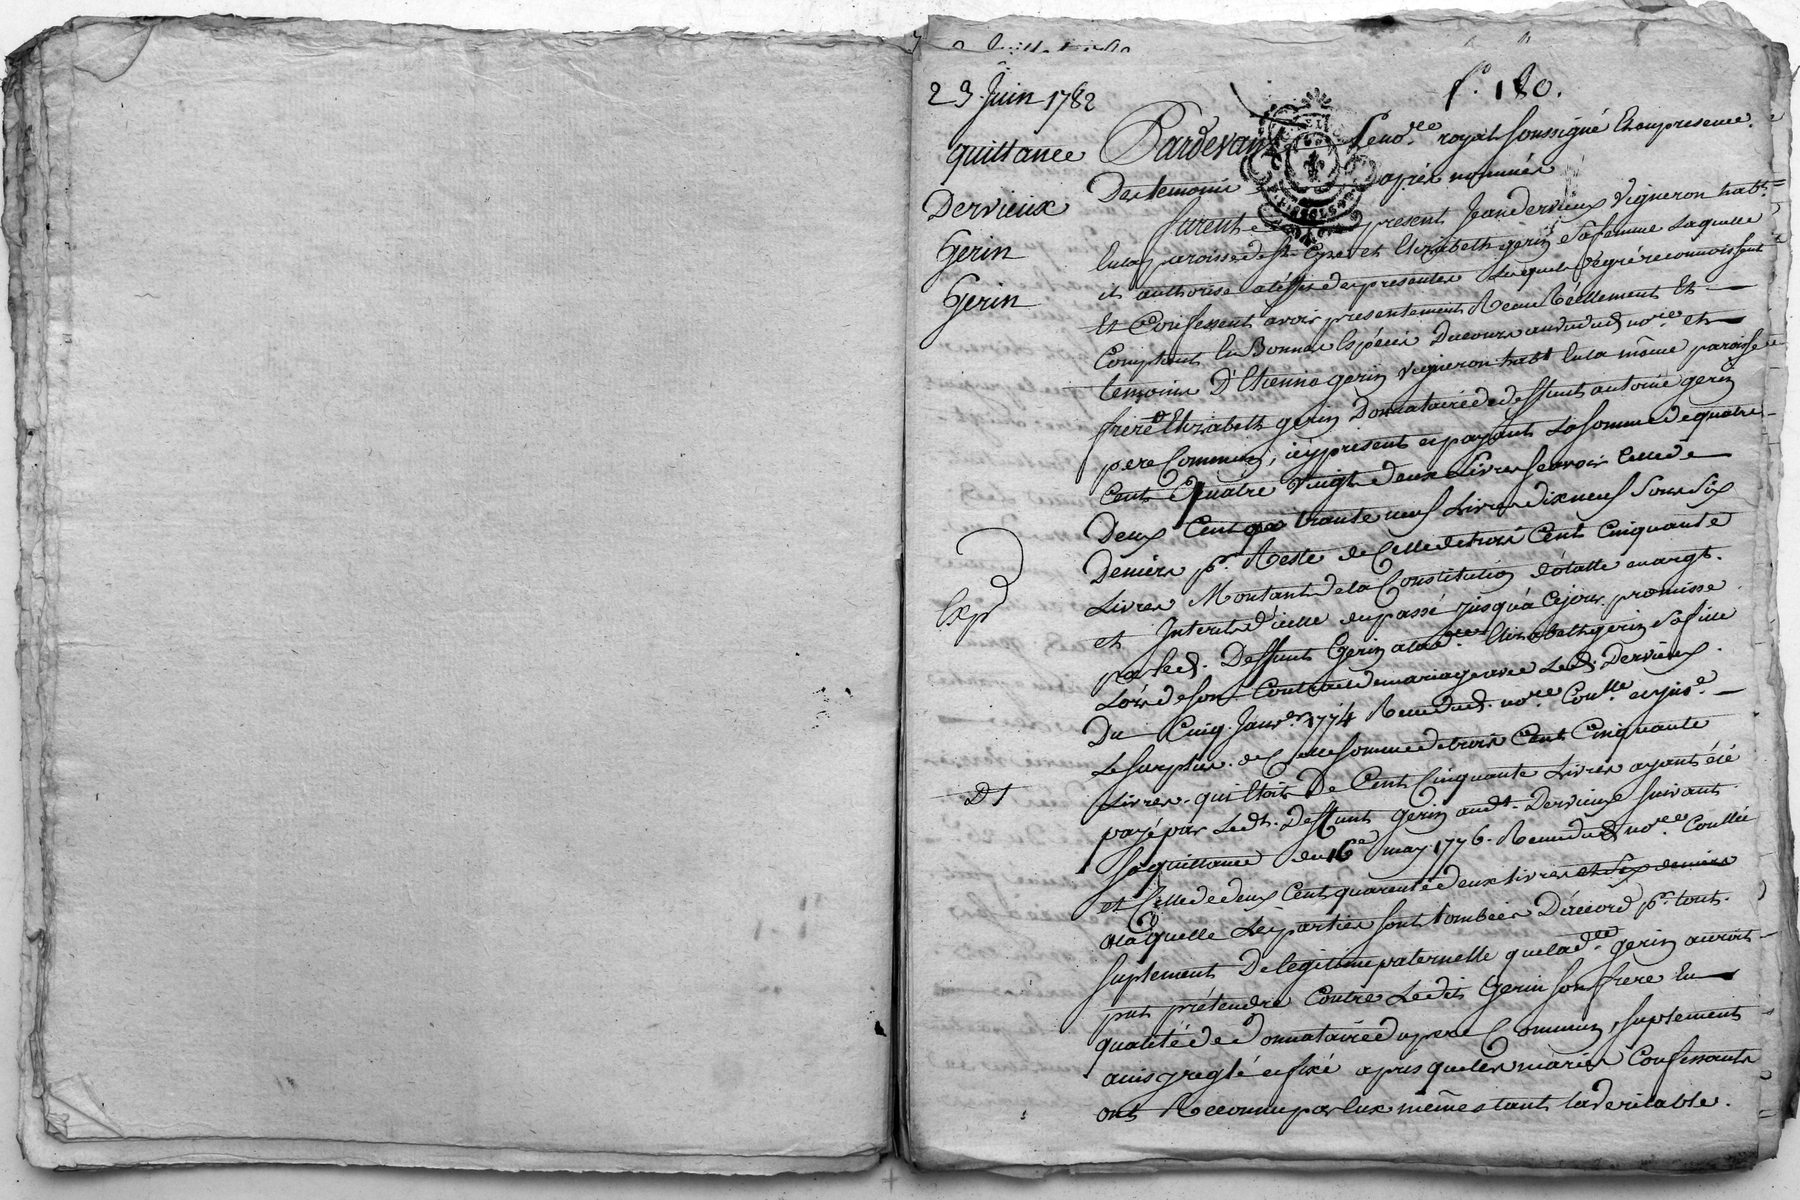 23 Juin 1782
quittance
Dervieux
Gerin
Gerin
Expd
D 1
f.° 180.
Pardevant Le no.re royal soussigné Et en presence
Des temoins apres nommés
furent present Jean dervieux Vigneron habt.
En la paroisse de st. Cyr et Elizabeth gerin sa femme Laquelle
il authorise a l'effet des presentes Lesquels de gré reconnoissent
Et Confessent avoir presentement Receu Réellement Et
Comptant En Bonnes Espéces Ducours au vu dud. no.re et
temoins D'Etienne gerin vigneron habt En la même paroisse
frere d'Elizabeth gerin Donnataire de deffunt antoine gerin
pere Commun, icy present et payant La somme de quatre
Cent Quatre Vingt deux Livres sçavoir Celle de
Deux Cent trante neuf Livres dixneuf Sous Six
Deniers p.r Reste de Celle de trois Cent Cinquante
Livres Montant de la Constitution dotalle en argt.
et Interets d'icelle du passé jusqu'à Cejour, promisse
par led. Deffunt Gerin a lad.e Elizabeth gerin sa fille
Lors de son Contract de mariage avec Led. Dervieux
Du Cinq Janv.er 1774 Receu dud. no.re Con.lle
Le surplus de Cette somme de trois Cent Cinquante
Livres qui Etoit De Cent Cinquante Livres ayant été
payé par Ledt. Deffunt gerin audt. Dervieux suivant
Sa quittance du 16e may 1776. Receu dud. no.re Con.llé
et Celle de deux Cent quarente deux livres et six deniers
a laquelle Les parties sont tombées D'accord p.r tout
suplement De légitime paternelle que lad.e gerin auroit
put prétendre Contre Ledit Gerin son frere En
qualité de donnataire du pere Commun, suplement
ainsy reglé et fixé apres que les mariés Confessants
ont Reconnu par Eux mêmes tant la veritable